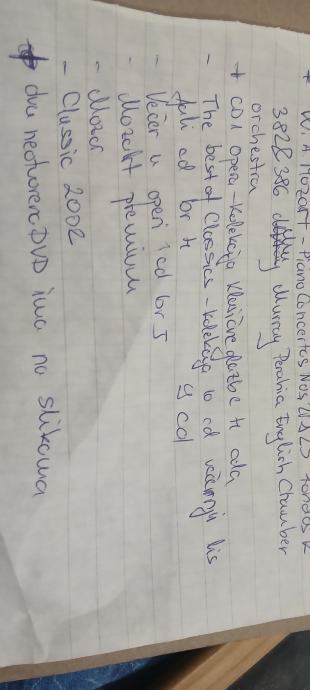 * W. A Mozart - Piano Concertos Nos 21 & 23 rondos K
382 & 386 Murray Perahia English Chamber
orchestra
+ CD 1 Opera - Kolekcija klasične glazbe 4 cda
- The best of Classics - kolekcija 10 cd večernji lis
fali cd br 4 9 cd
- Večer u operi 1 cd br 5
- Mozart premium
- Mozar
- Classic 2002
dva neotvorena DVD ima na slikama